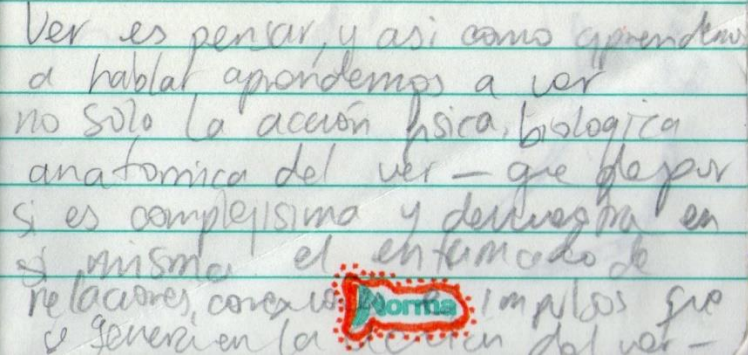 Ver es pensar, y asi como aprendemos
a hablar aprendemos a ver
no solo la acción fisica, biologica
anatomica del ver — que de por
si es complejisima y demuestra en
si misma el entramado de
relaciones, Norma impulsos que
se generan en la del ver —